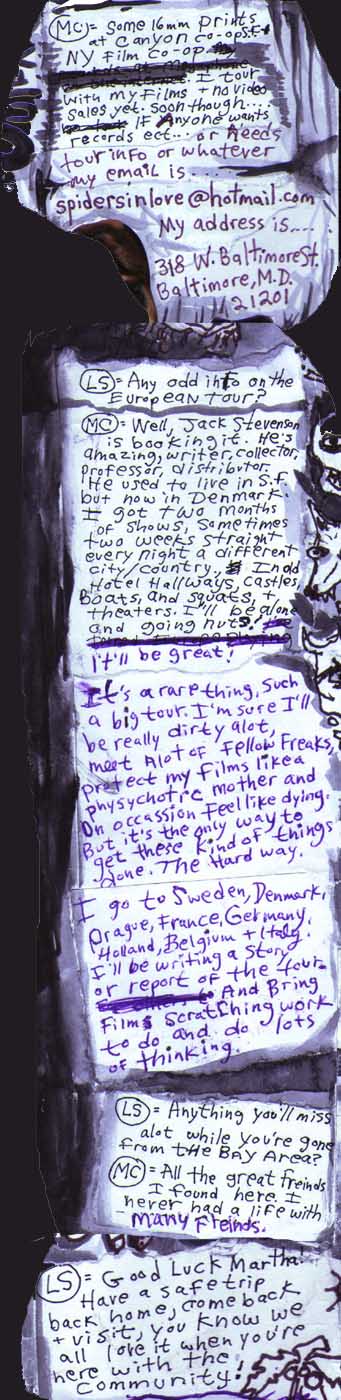 MC = Some 16mm prints
at Canyon co-ops. +
NY Film co-op.
I tour
with my films + no video
sales yet. Soon though....
IF Anyone wants
records ect... or needs
tour info or whatever
my email is.....
spidersinlove@hotmail.com
My address is....
318 W. Baltimore St.
Baltimore, M.D.
21201
LS = Any odd info on the
European tour?
MC = Well, Jack Stevenson
is booking it. He's
amazing, writer, collector,
professor, distributor.
He used to live in S.F.
but now in Denmark.
I got two months
of shows, sometimes
two weeks straight
every night a different
city/country. In old
Hotel Hallways, Castles,
Boats, and squats, +
theaters. I'll be alone
and going nuts!
It'll be great!
It's a rare thing, such
a big tour. I'm sure I'll
be really dirty alot,
meet Alot of fellow Freaks,
protect my films like a
physychotic mother and
On occassion feel like dying.
But it's the only way to
get these kind of things
done. The Hard way.
I go to Sweden, Denmark,
Prague, France, Germany,
Holland, Belgium + Italy.
I'll be writing a story
or report of the tour-
And Bring
films scratching work
to do and do lots
of thinking.
LS = Anything you'll miss
alot while you're gone
from tHe BAY AreA?
MC = All the great freinds
I found here. I
never had a life with
MANY Freinds.
LS = Good Luck Martha!
Have a safe trip
back home, come back
+ visit, you know we
all love it when you're
here with the
Community!